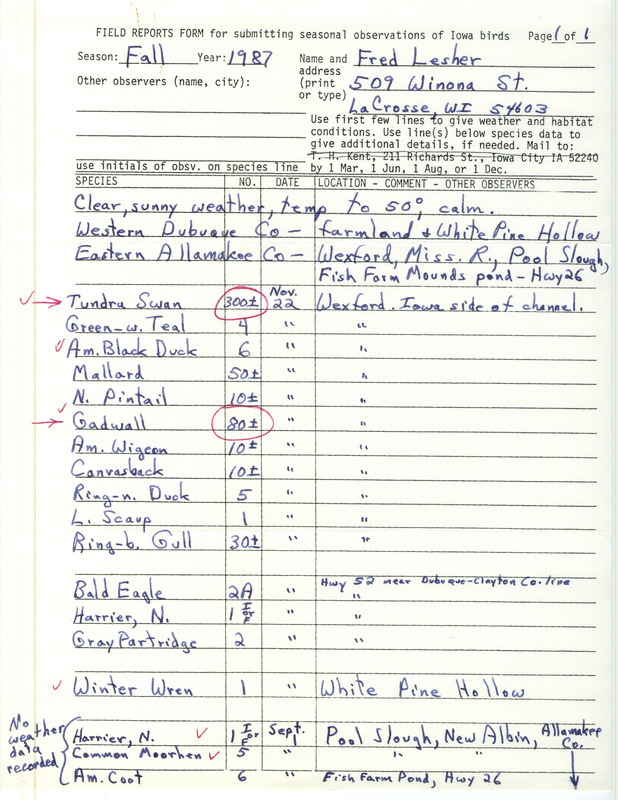 FIELD REPORTS FORM for submitting seasonal observations of Iowa birds Page 1 of 1
Season: Fall Year: 1987 Name and address (print or type) Fred Lesher
Other observers (name, city): 509 Winona St.
LaCrosse, WI 54603
Use first few lines to give weather and habitat
conditions. Use line(s) below species data to
give additional details, if needed. Mail to:
T. H. Kent, 211 Richards St., Iowa City IA 52240
use initials of obsv. on species line by 1 Mar, 1 Jun, 1 Aug, or 1 Dec.
SPECIES NO. DATE LOCATION - COMMENT - OTHER OBSERVERS
Clear, sunny weather, temp to 50°, calm.
Western Dubuque Co - farmland & White Pine Hollow
Eastern Allamakee Co - Wexford, Miss. R., Pool Slough,
Fish Farm Mounds pond - Hwy 26
Tundra Swan 300± Nov. 22 Wexford. Iowa side of channel.
Green-w. Teal 4 " "
Am. Black Duck 6 " "
Mallard 50± " "
N. Pintail 10± " "
Gadwall 80± " "
Am. Wigeon 10± " "
Canvasback 10± " "
Ring-n. Duck 5 " "
L. Scaup 1 " "
Ring-b. Gull 30± " "
Bald Eagle 2A " Hwy 52 near Dubuque-Clayton Co. line
"
Harrier, N. 1 I or F " "
Gray Partridge 2 " "
Winter Wren 1 " White Pine Hollow
No weather data recorded
Harrier, N. 1 I or F Sept. 1 Pool Slough, New Albin, Allamakee Co.
Common Moorhen 5 " " "
Am. Coot 6 Fish Farm Pond, Hwy 26